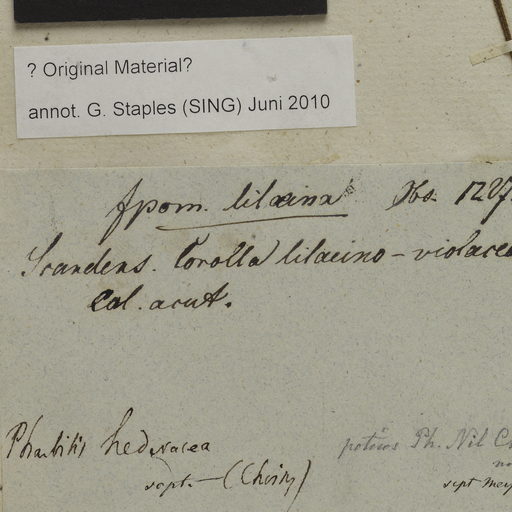 ? Original Material?
annot. G. Staples (SING) Juni 2010
Ipom. lilacina Hbs. 127
Scandens. Corolla lilacino - violacea
Cal. acut.
Pharbitis hederacea
sept. — (Choisy)
potius Ph. Nil Ch
sept Mey